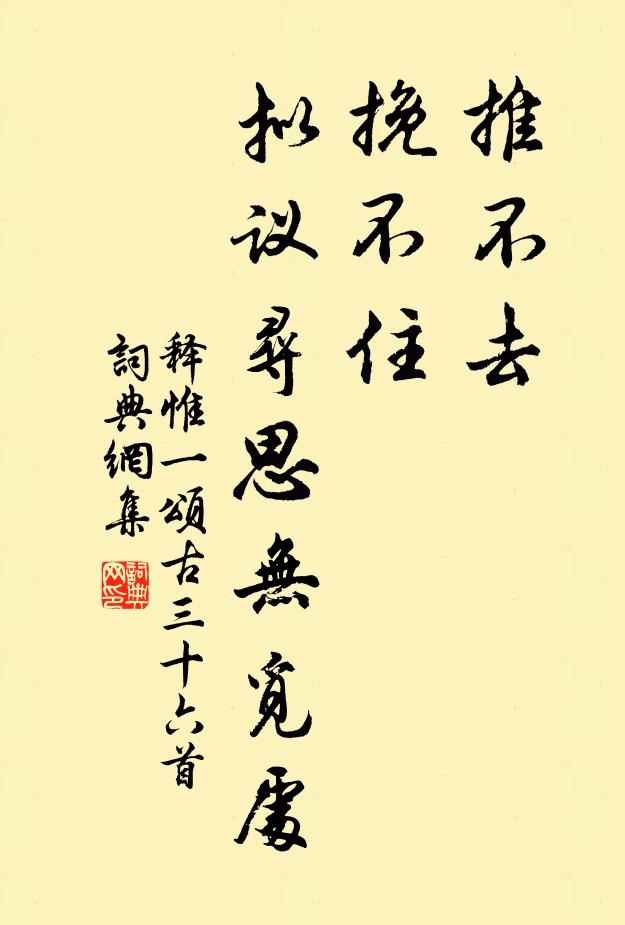 推不去
挽不住
拟议尋思無覓處
释惟一頌古三十六首
詞典網集
詞典网印